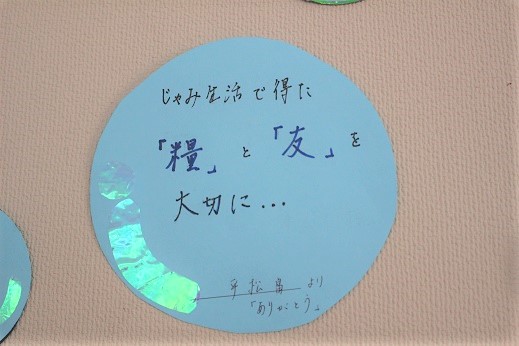 じゃみ生活で得た
「糧」と「友」を
大切に...
より
「ありがとう」